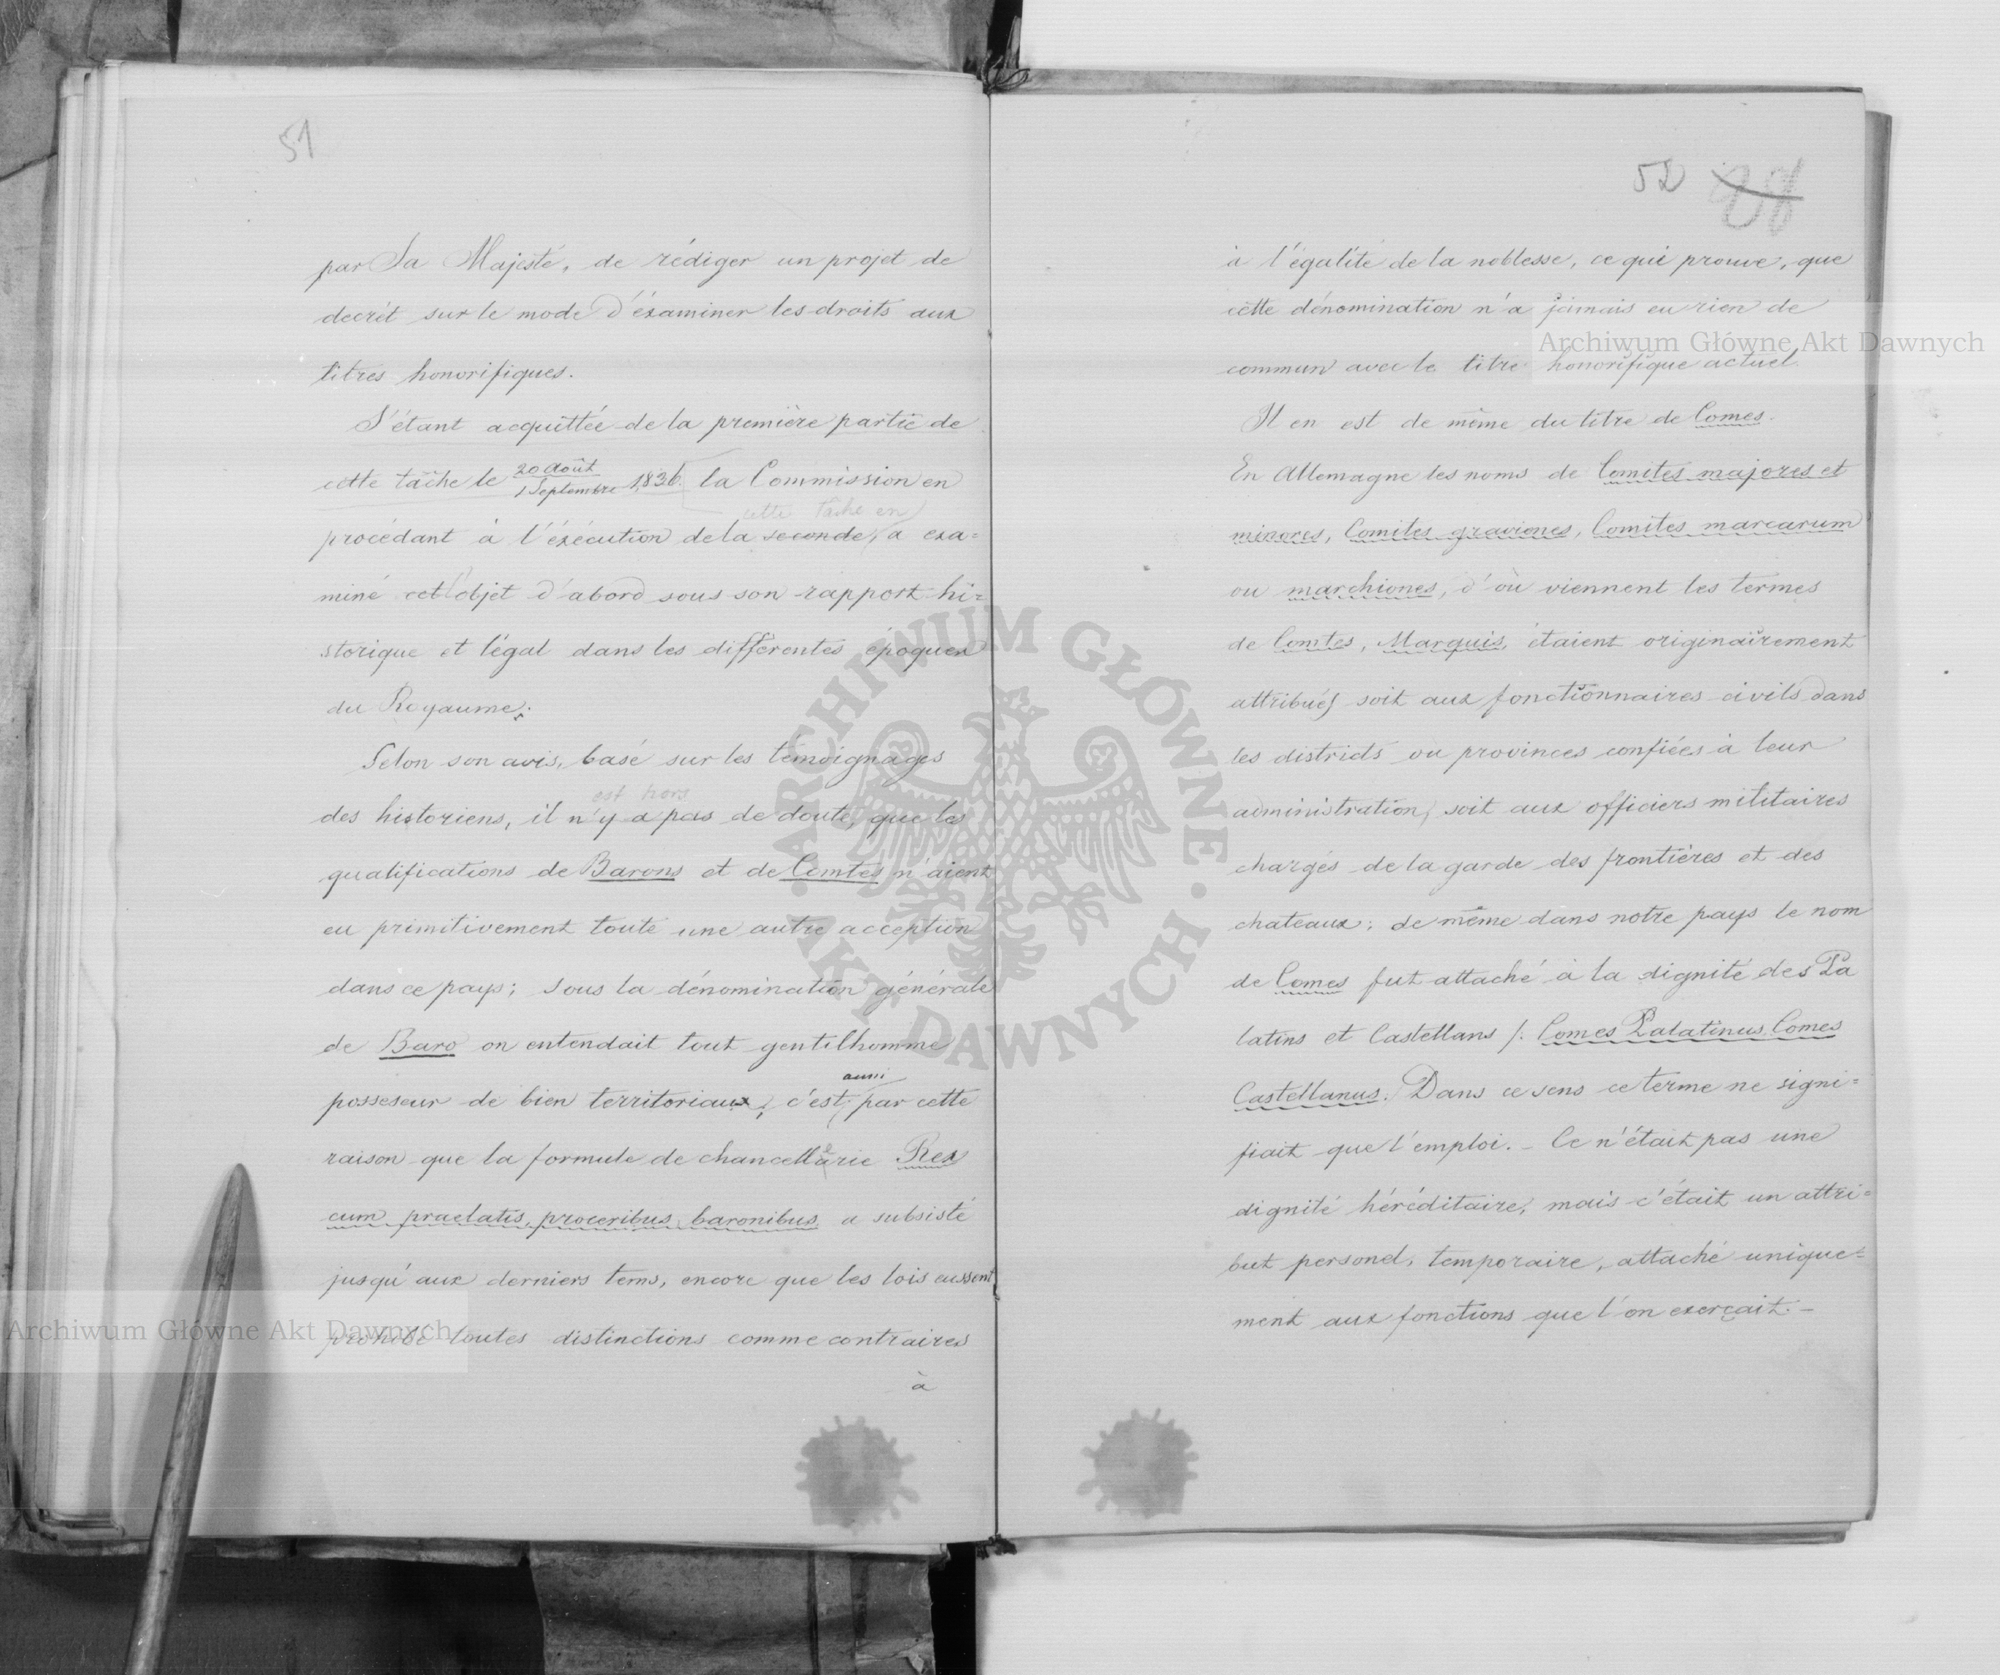 51
par Sa Majesté, de rédiger un projet de
decrèt sur le mode d'éxaminer les droits aux
titres honorifiques.
S'étant acquittée de la première partie de
cette tâche le 20 Août / 1 Septembre 1836 la Commission en
cette tâche en
procédant à l'éxécution de la seconde, a exa=
miné cet objet d'abord sous son rapport hi=
storique et légal dans les différentes époques
du Royaume.
Selon son avis, basé sur les témoignages
est hors
des historiens, il n'y a pas de doute, que les
qualifications de Barons et de Comtes n'aient
eu primitivement toute une autre acception
dans ce pays; sous la dénomination générale
de Baro on entendait tout gentilhomme
aussi
posseseur de bien territoriaux, c'est par cette
raison que la formule de chancellerie Rex
cum praelatis, proceribus, baronibus a subsisté
jusqu'aux derniers tems, encore que les lois eussent
prohibé toutes distinctions comme contraires
à
52 28
à l'égalité de la noblesse, ce qui prouve, que
cette dénomination n'a jamais eu rien de
commun avec le titre honorifique actuel.
Il en est de même du titre de Comes.
En Allemagne les noms de Comites majores et
minores, Comites graviones, Comites marcarum
ou marchiones, d'où viennent les termes
de Comtes, Marquis, étaient originairement
attribués soit aux fonctionnaires civils dans
les districts ou provinces confiées à leur
administration, soit aux officiers militaires
chargés de la garde des frontières et des
chateaux; de même dans notre pays le nom
de Comes fut attaché à la dignité des Pa
latins et Castellans /: Comes Palatinus, Comes
Castellanus. Dans ce sens ce terme ne signi=
fiait que l'emploi. – Ce n'était pas une
dignité héréditaire, mais c'était un attri=
but personel, temporaire, attaché unique=
ment aux fonctions que l'on exerçait. –
Archiwum Główne Akt Dawnych
Archiwum Główne Akt Dawnych
ARCHIWUM GŁÓWNE · AKT DAWNYCH ·